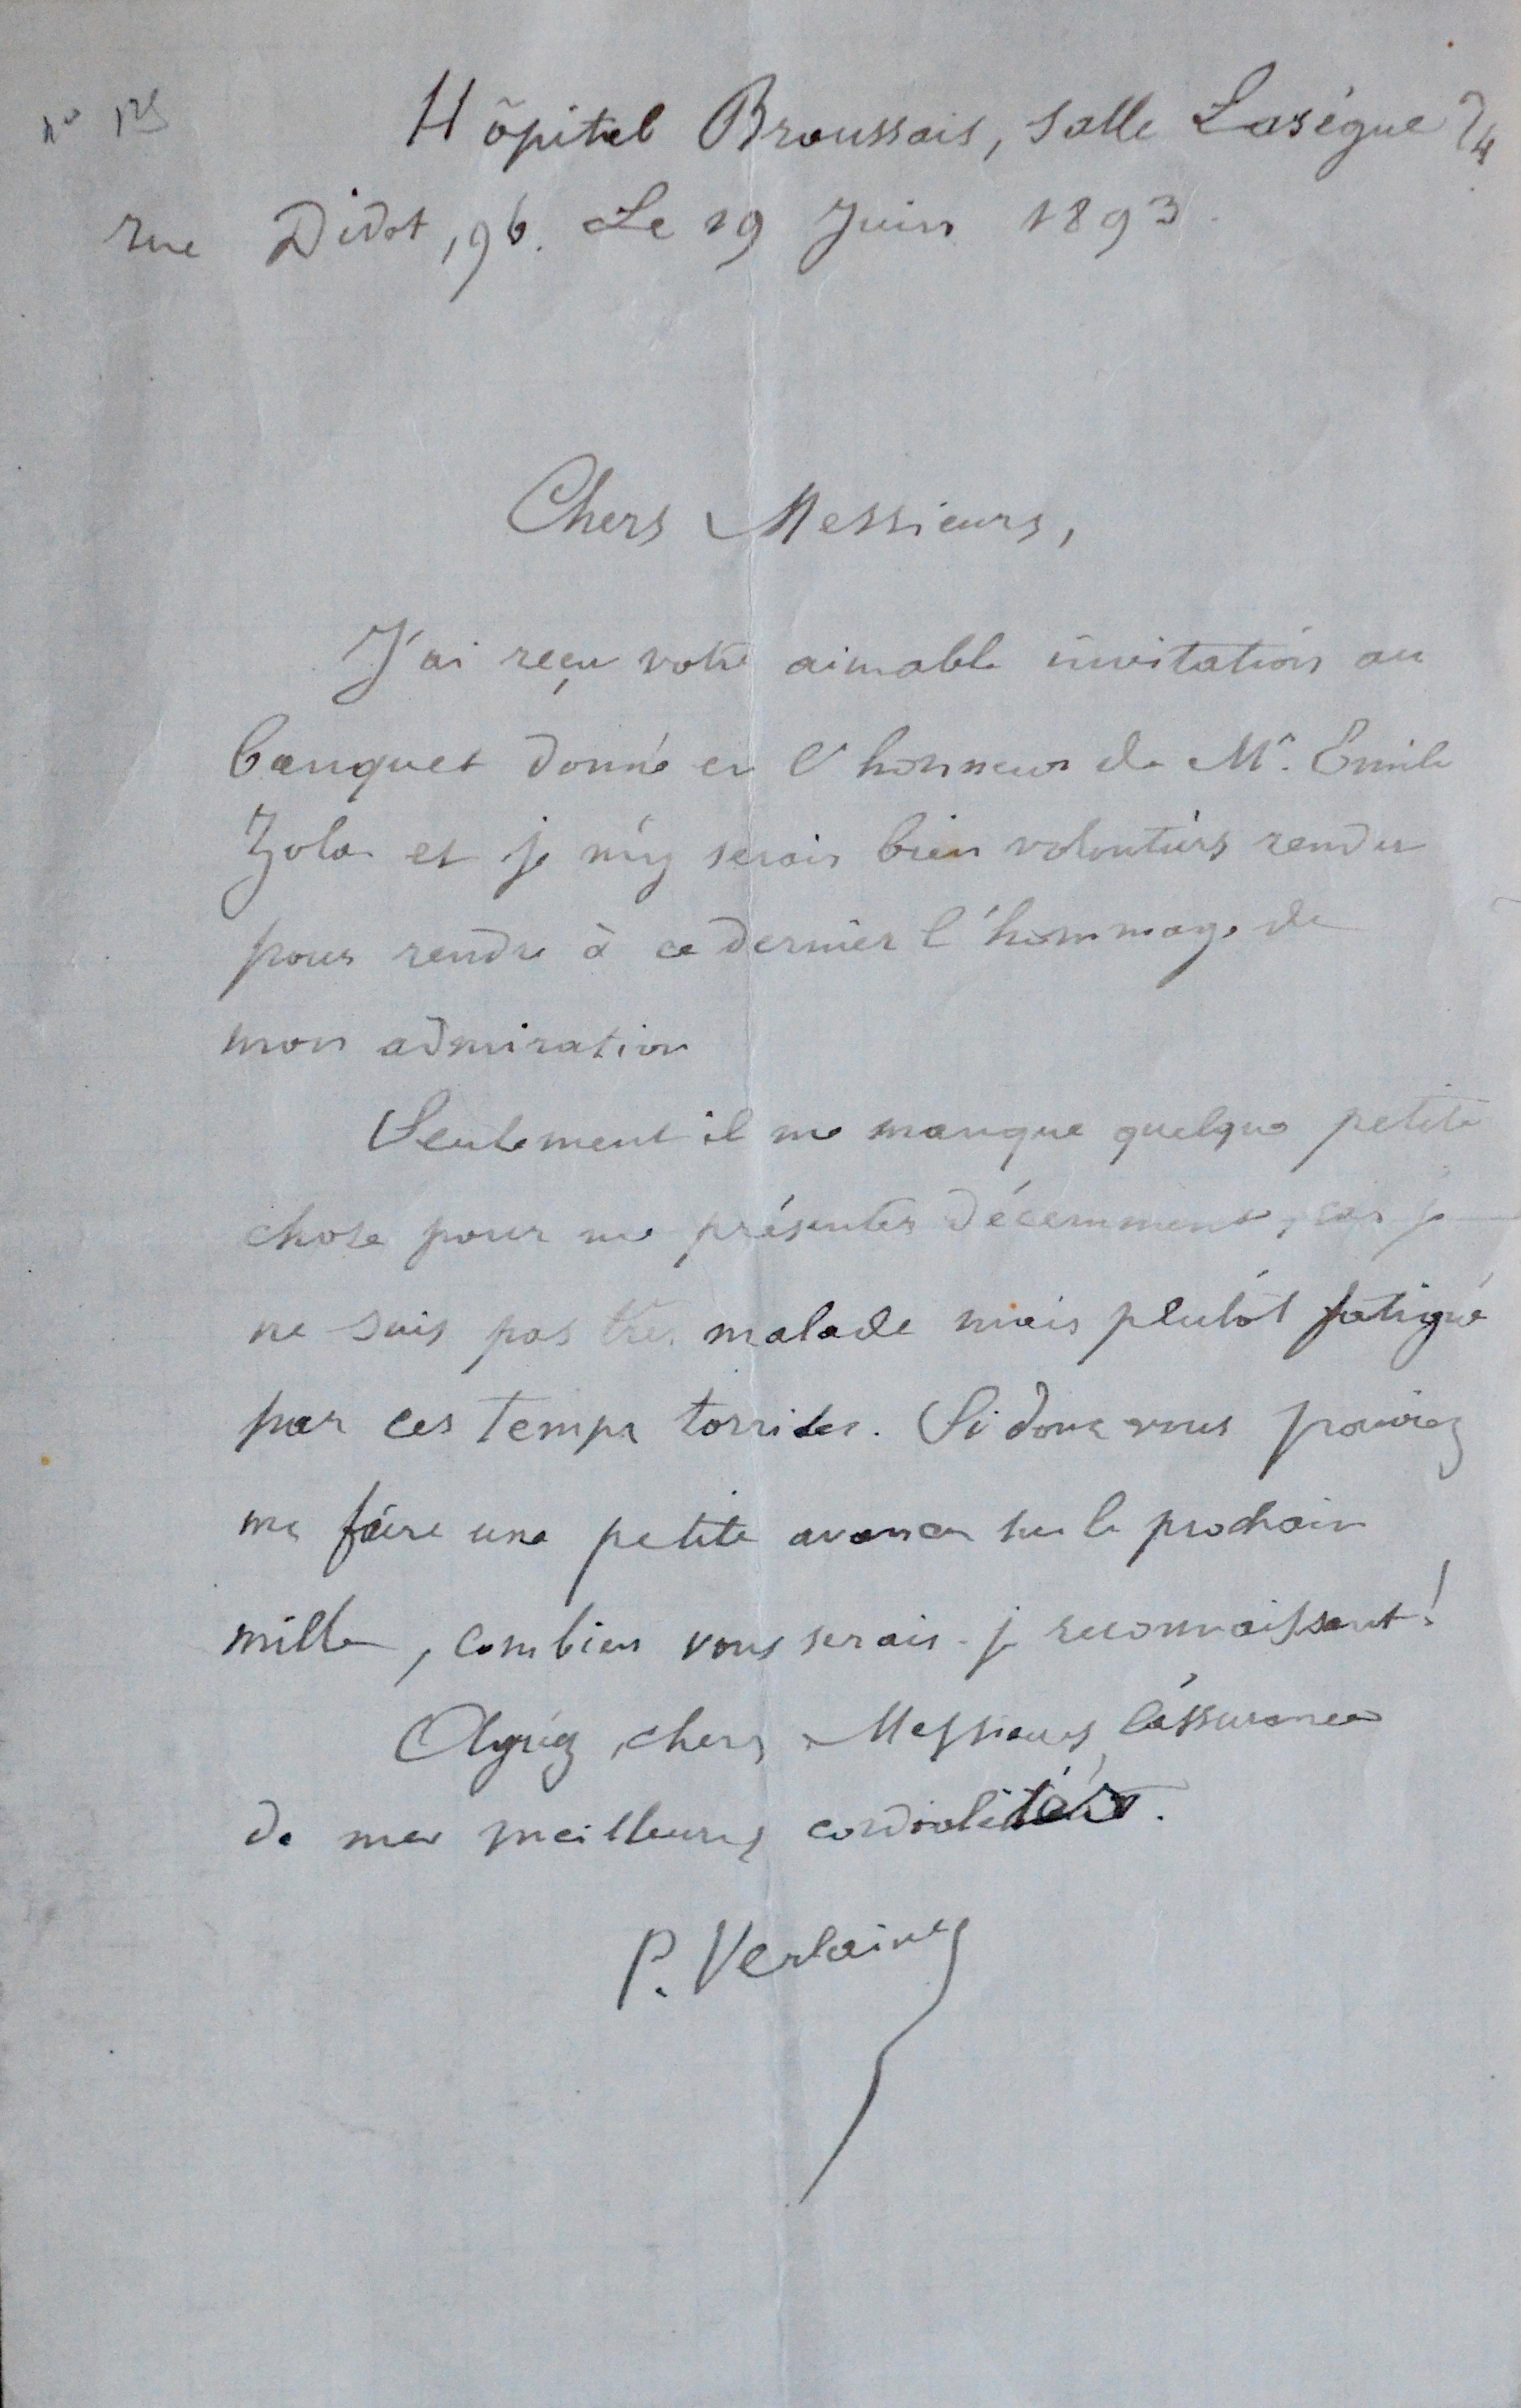 Hôpital Broussais, salle Lasègue 24
rue Didot, 96. Le 19 Juin 1893.
Chers Messieurs,
J'ai reçu votre aimable invitation au
banquet donné en l'honneur de Mr. Emile
Zola et je m'y serais bien volontiers rendu
pour rendre à ce dernier l'hommage de
mon admiration
Seulement il me manque quelque petite
chose pour me présenter décemment, car je
ne suis pas très malade mais plutôt fatigué
par ces temps torrides. Si donc vous pouviez
me faire une petite avance sur le prochain
mille, combien vous serais-je reconnaissant!
Agréez, chers Messieurs, l'assurance
de mes meilleures cordialités.
P. Verlaine